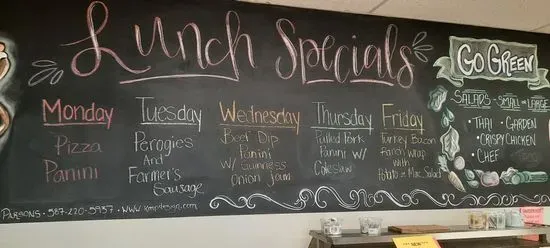 Lunch Specials
Monday
Pizza
Panini
Tuesday
Perogies
And
Farmer's
Sausage
Wednesday
Beef Dip
Panini
w/ Guinness
Onion Jam
Thursday
Pulled Pork
Panini w/
Coleslaw
Friday
Turkey Bacon
Ranch Wrap
with
Potato or Mac Salad
GO GREEN
SALADS - SMALL - LARGE
• THAI • GARDEN
• CRISPY CHICKEN
• CHEF
PARSONS • 587-220-5937 •
NEW